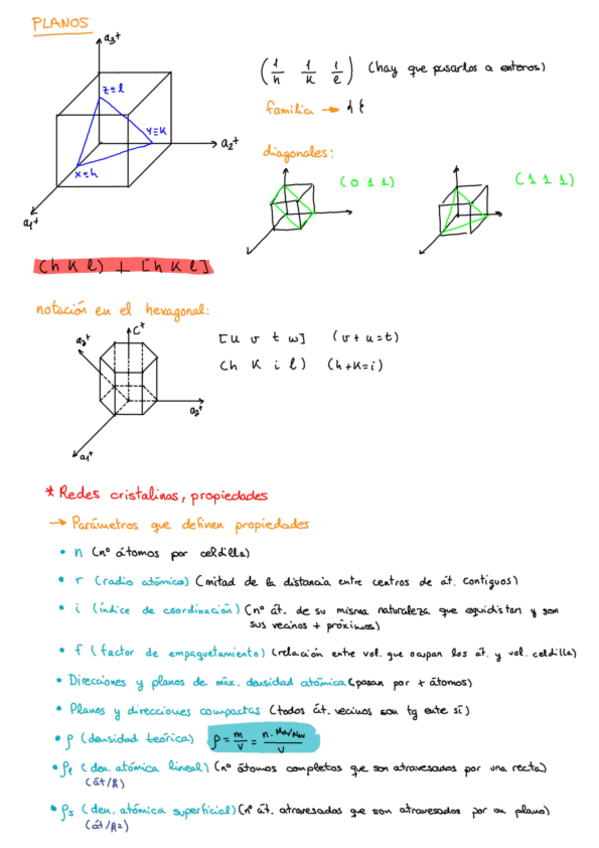 PLANOS
a₃⁺
z=l
y=k
x=h
a₂⁺
a₁⁺
(1/h 1/k 1/l) (hay que pasarlos a enteros)
familia → { {
diagonales:
(0 1 1)
(1 1 1)
(h k l) ⊥ [h k l]
notación en el hexagonal:
c⁺
a₃⁺
a₂⁺
a₁⁺
[u v t w] (v+u=t)
(h k i l) (h+k=i)
* Redes cristalinas, propiedades
→ Parámetros que definen propiedades
• n (nº átomos por celdilla)
• r (radio atómico) (mitad de la distancia entre centros de át. contiguos)
• i (índice de coordinación) (nº át. de su misma naturaleza que equidistan y son
sus vecinos + próximos)
• f (factor de empaquetamiento) (relación entre vol. que ocupan los át. y vol. celdilla)
• Direcciones y planos de máx. densidad atómica (pasan por + átomos)
• Planos y direcciones compactas (todos át. vecinos son tg ente sí)
• ρ (densidad teórica) ρ = m/V = n·Ma/Nav/V
• ρₗ (den. atómica lineal) (nº átomos completos que son atravesados por una recta)
(át/Å)
• ρₛ (den. atómica superficial) (nº át. atravesados que son atravesados por un plano)
(át/Å²)